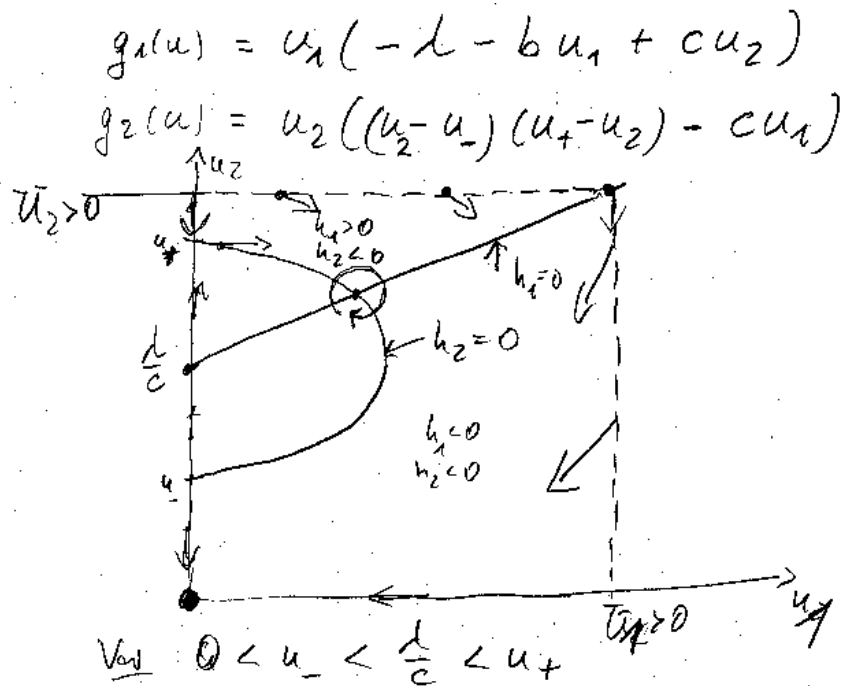 g₁(u) = u₁(-λ - bu₁ + cu₂)
g₂(u) = u₂((u₂-u₋)(u₊-u₂) - cu₁)
u₂
Ū₂>0
h₁>0
h₂<0
u₊
h₁=0
λ/c
h₂=0
h₁<0
h₂<0
u₋
Ū₁>0
u₁
0 < u₋ < λ/c < u₊